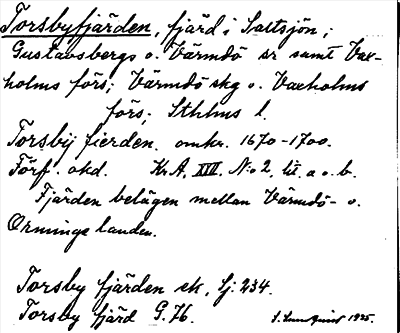 Torsbyfjärden, fjärd i Saltsjön,
Gustavsbergs o. Värmdö sr samt Vax-
holms förs; Värmdö skg o. Vaxholms
förs; Sthlms l.
Torsbÿ fierden. omkr. 1670-1700.
Förf. okd. Kr.A. XIII. N:o 2, lit. a o. b.
Fjärden belägen mellan Värmdö- o.
Ormingelanden.
Torsby fjärden ek. Sj: 234.
Torsby fjärd G. 76.
S. Lundqvist 1925.